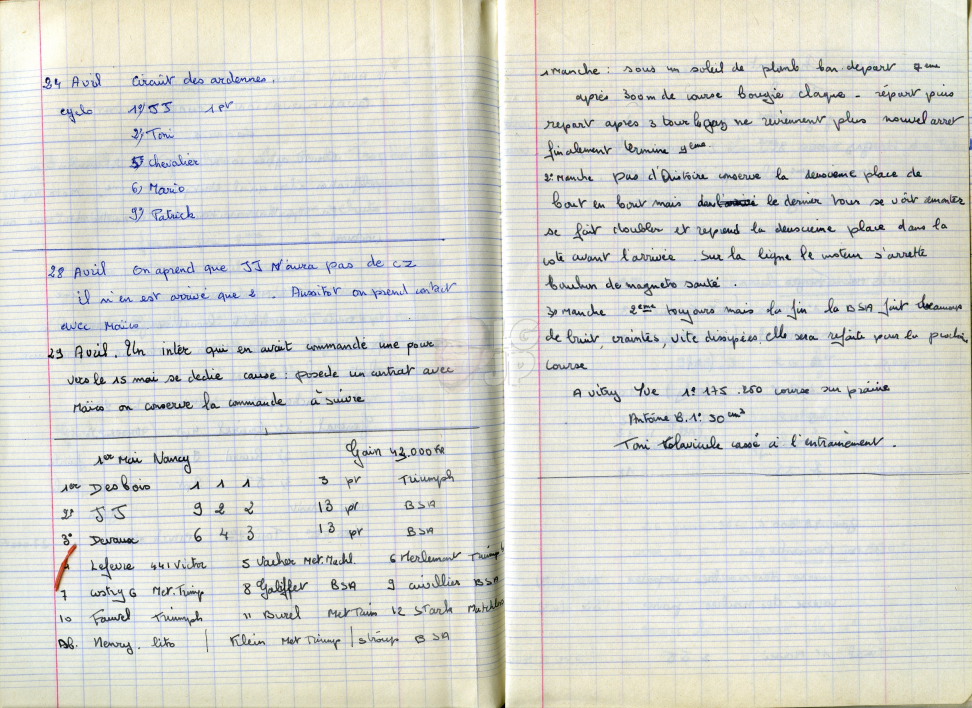 24 Avril Circuit des ardennes.
cyclo 1°/ JJ 1 pt
2°/ Toni
5°/ Chevalier
6°/ Mario
9°/ Patrick
28 Avril On aprend que JJ N'aura pas de CZ
il n'en est arrivé que 2. Aussitot on prend contact
avec Maïco
29 Avril. Un intèr qui en avait commandé une pour
vers le 15 mai se dedie cause : posede un contrat avec
Maïco on conserve la commande à suivre
1er Mai Nancy Gain 43.000 Fr
1er Desbois 1 1 1 3 pt Triumph
2° JJ 9 2 2 13 pt BSA
3° Devaux 6 4 3 13 pt BSA
4 Lefevre 441 Victor 5 Vacher Met. Machl. 6 Merlement Triump
7 6 Met. Trimp 8 Galiffet BSA 9 cuvillier BSA
10 Fauvel Triumph 11 Burel Met Tim 12 Stark Matchless
Ab. Henry. lito / Klein Met Triump / Stroup BSA
1 Manche : sous un soleil de plomb bon depart 7eme
après 300m de course bougie claque - répart puis
repart apres 3 tour le gaz ne reviennent plus nouvel arret
finalement termine 9eme.
2° Manche pas d'Histoire conserve la deuxieme place de
bout en bout mais le dernier tous se voit remonter
se fait doubler et reprend la deuxieme place dans la
cote avant l'arrivée. Sur la ligne le moteur s'arrette
bouchon de magneto sauté.
3° Manche 2eme toujours mais la fin la BSA fait beaucoup
de bruit, craintes, vite dissipées elle sera refaite pour la prochaine
course
A Vitry Yve 1° 175.250 course sur prairie
Antoine B. 1° 50 cm3
Toni clavicule cassé à l'entrainement.